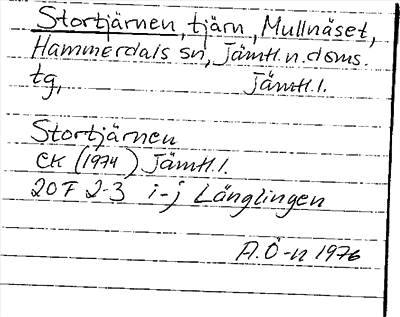 Stortjärnen, tjärn, Mullnäset,
Hammerdals sn, Jämtl.n.doms.
tg, Jämtl.l.
Stortjärnen
EK (1974) Jämtl.l.
20F 2-3 i-j Länglingen
A.Ö-n 1976